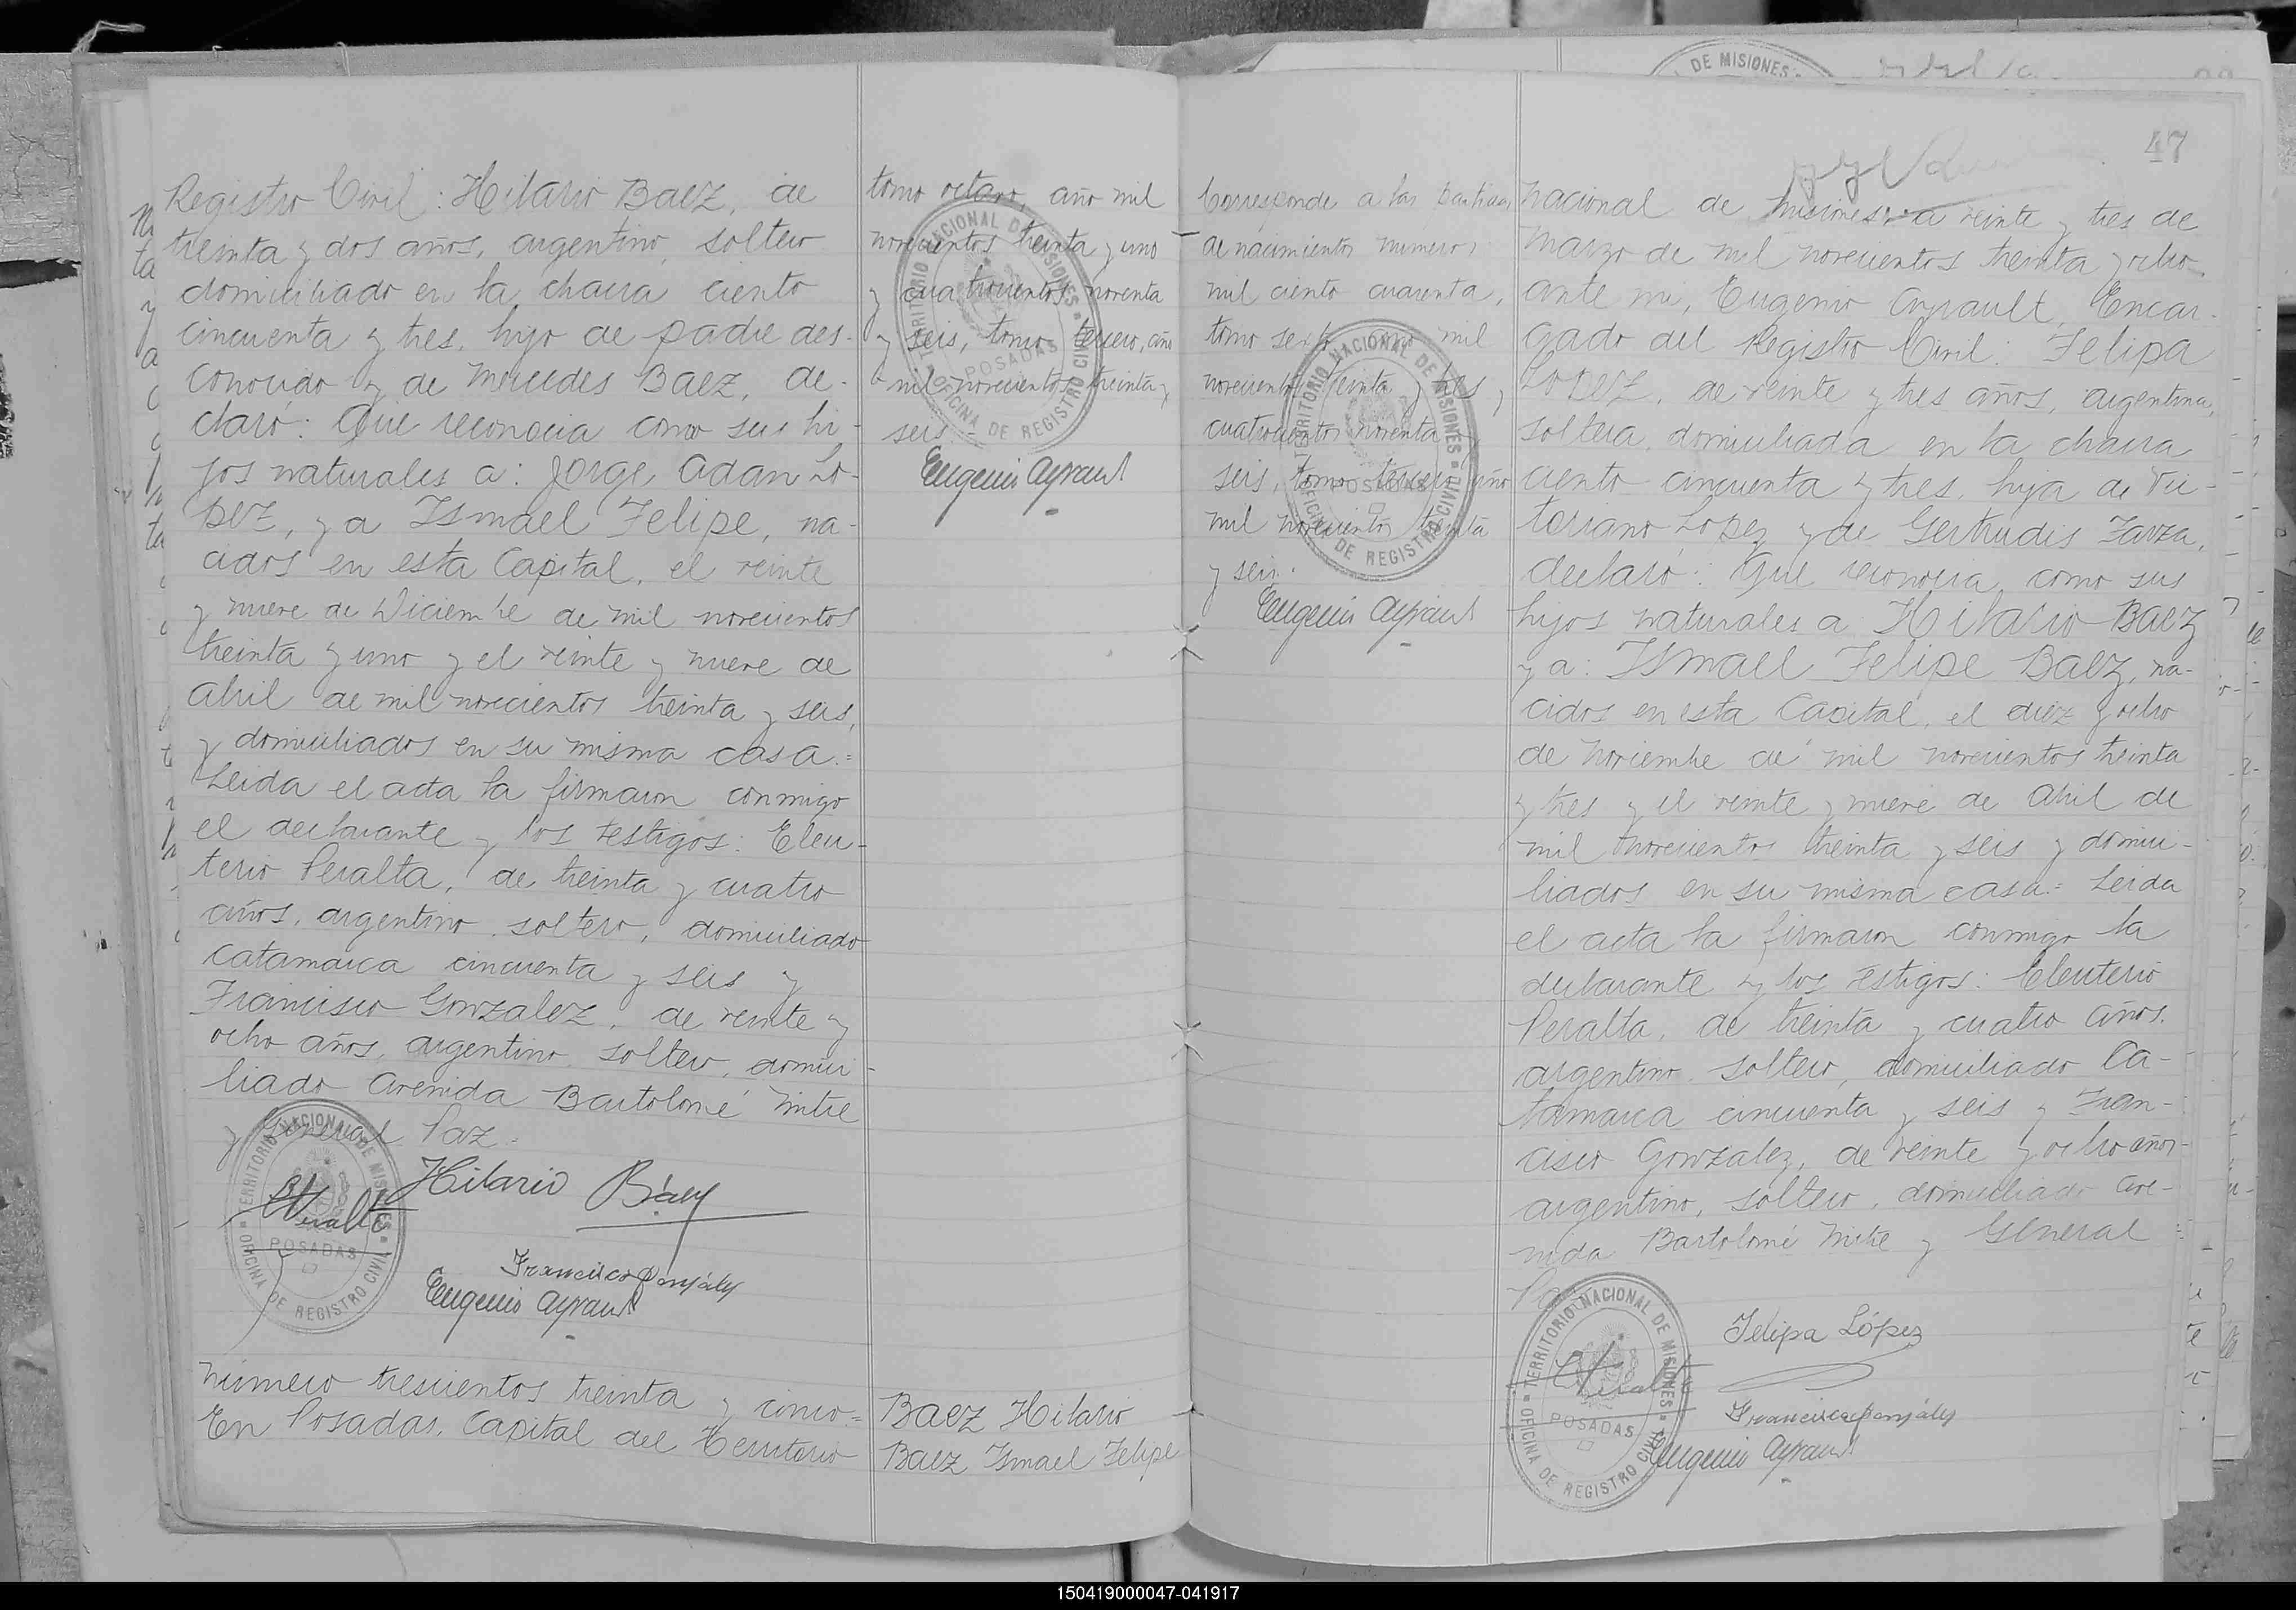 Registro Civil: Hilario Baez, de
treinta y dos años, argentino, soltero
domiciliado en la chacra ciento
cincuenta y tres, hijo de padre des-
conocido y de Mercedes Baez, de-
claró: Que reconocia como sus hi-
jos naturales a: Jorge Adan Lo-
pez, y a Ismael Felipe, na-
cidos en esta Capital, el veinte
y nueve de Diciembre de mil novecientos
treinta y uno y el veinte y nueve de
Abril de mil novecientos treinta y seis,
y domiciliados en su misma casa.=
Leida el acta la firmaron conmigo
el declarante y los testigos: Eleu-
terio Peralta, de treinta y cuatro
años, argentino, soltero, domiciliado
Catamarca cincuenta y seis y
Francisco Gonzalez, de veinte y
ocho años, argentino, soltero, domici-
liado Avenida Bartolomé Mitre
y General Paz.
Hilario Báez
EPeralta
Francisco Gonzáles
Eugenio Ayrault
TERRITORIO NACIONAL DE MISIONES
POSADAS
OFICINA DE REGISTRO CIVIL
Número trescientos treinta y cinco=
En Posadas, Capital del Territorio
tomo octavo, año mil
novecientos treinta y uno
y cuatrocientos noventa
y seis, tomo tercero, año
mil novecientos treinta y
seis.=
Eugenio Ayrault
TERRITORIO NACIONAL DE MISIONES
POSADAS
OFICINA DE REGISTRO CIVIL
Baez Hilario
Baez Ismael Felipe
DE MISIONES
47
Corresponde a las partidas
de nacimientos numeros
mil ciento cuarenta,
tomo sexto, año mil
novecientos treinta y tres, y
cuatrocientos noventa y
seis, tomo tercero año
mil novecientos treinta
y seis.
Eugenio Ayrault
TERRITORIO NACIONAL DE MISIONES
POSADAS
OFICINA DE REGISTRO CIVIL
nacional de Misiones, a veinte y tres de
Marzo de mil novecientos treinta y ocho
ante mi, Eugenio Ayrault, Encar-
gado del Registro Civil: Felipa
Lopez, de veinte y tres años, argentina,
soltera, domiciliada en la chacra
ciento cincuenta y tres, hija de Vic-
toriano Lopez y de Gertrudis Zarza,
declaró: Que reconocia como sus
hijos naturales a Hilario Baez
y a: Ismael Felipe Baez, na-
cidos en esta Capital, el diez y ocho
de Noviembre de mil novecientos treinta
y tres y el veinte y nueve de Abril de
mil novecientos treinta y seis y domici-
liados en su misma casa.= Leida
el acta la firmaron conmigo la
declarante y los testigos: Eleuterio
Peralta, de treinta y cuatro años,
argentino, soltero, domiciliado Ca-
tamarca cincuenta y seis y Fran-
cisco Gonzalez, de veinte y ocho años
argentino, soltero, domiciliado Ave-
nida Bartolomé Mitre y General
Paz
Felipa López
EPeralta
Francisco Gonzáles
Eugenio Ayrault
TERRITORIO NACIONAL DE MISIONES
POSADAS
OFICINA DE REGISTRO CIVIL
150419000047-041917